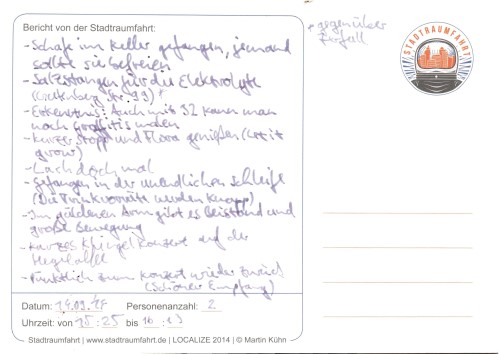 Bericht von der Stadtraumfahrt:
- Schafe im Keller gefangen, jemand
sollte sie befreien
- Salzstangen für die Elektrolyte
(Gutenberg Str. 99)!
- Erkenntnis: Auch mit 32 kann man
noch Graffitis malen
- kurzer Stopp und Flora genießen (Let it
grow)
- Lach doch mal
- gefangen in der unendlichen Schleife
(Die Trinkvorräte werden knapp)
- Im goldenen Arm gibt es Beistand und
große Bewegung
- kurzes Konzert auf der
- Pünktlich zum Konzert wieder zurück
(Schöner Empfang)
Datum: 14.09.14 Personenanzahl: 2
Uhrzeit: von 15:25 bis 16:
Stadtraumfahrt | www.stadtraumfahrt.de | LOCALIZE 2014 | © Martin Kühn
gegenüber
STADTRAUMFAHRT